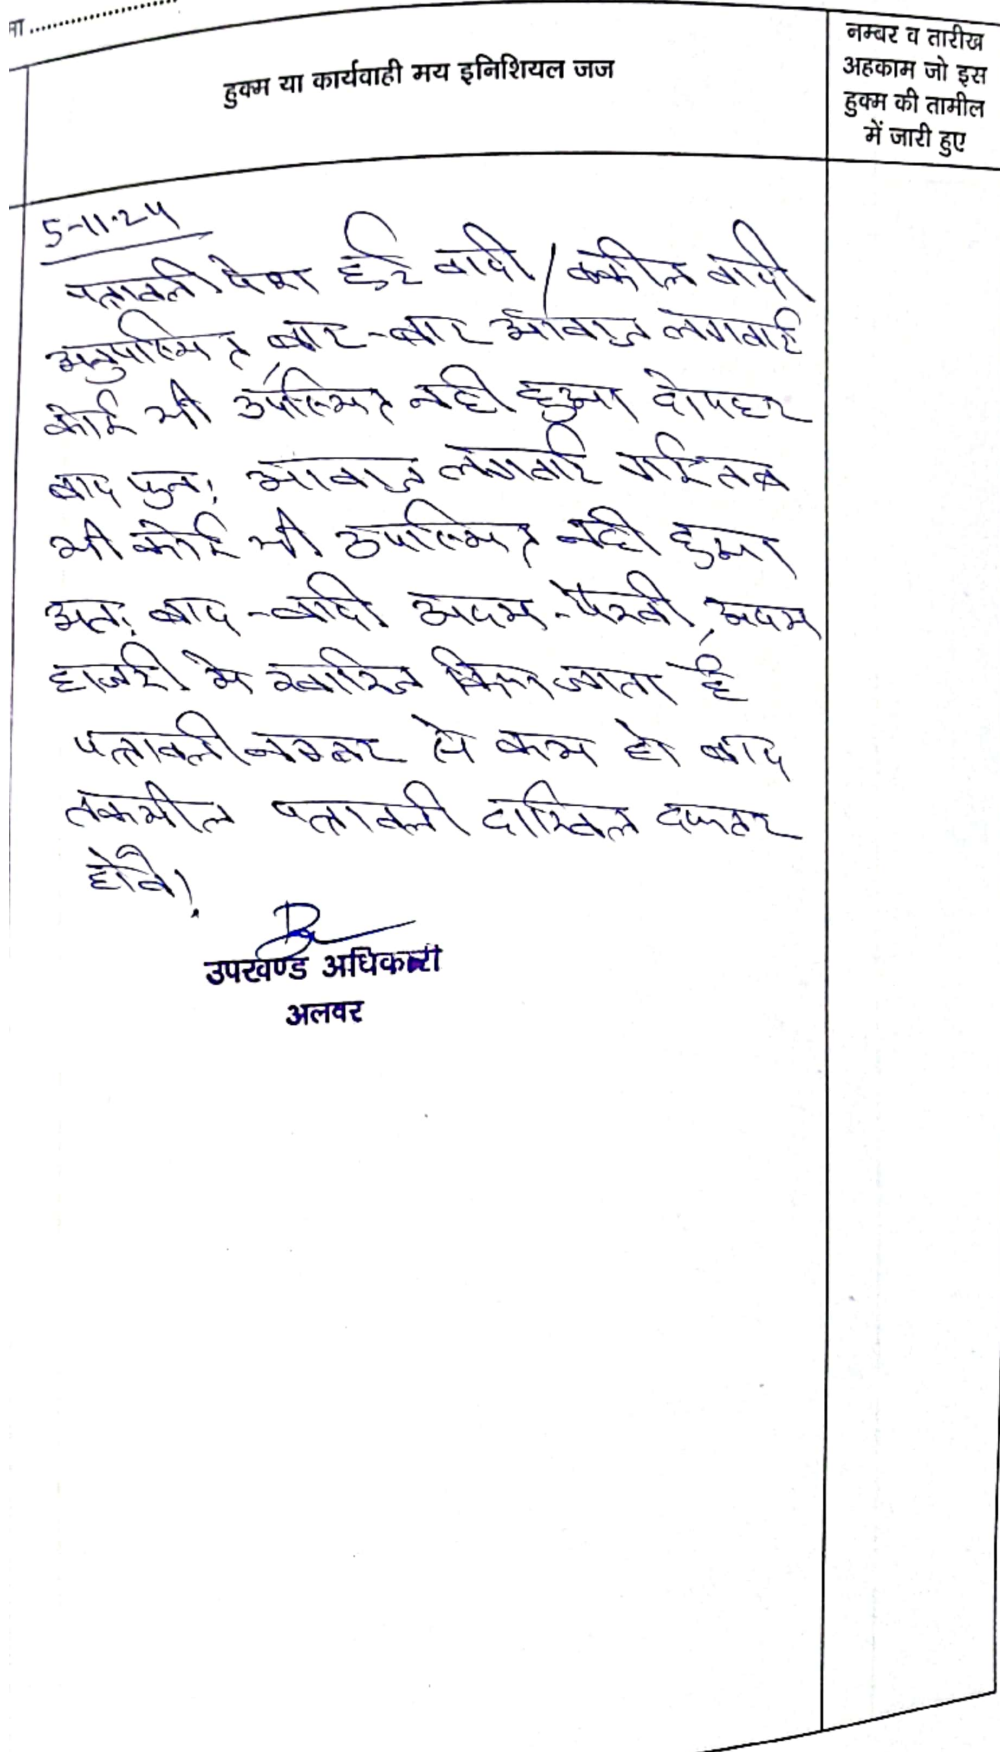 मा ..............................
हुक्म या कार्यवाही मय इनिशियल जज
नम्बर व तारीख
अहकाम जो इस
हुक्म की तामील
में जारी हुए
5-11-24
पत्रावली पेश हुई वादी / वकील वादी
अनुपस्थित, बार-बार आवाज लगवाई
कोई भी उपस्थित नही हुआ दोपहर
बाद पुन: आवाज लगवाई गई तब
भी कोई भी उपस्थित नही हुआ
अत: वाद-वादी अदम-पैरवी, अदम
हाजरी मे खारिज किया जाता है
पत्रावली नम्बर से कम हो बाद
तकमील पत्रावली दाखिल दफ्तर
होवे।
उपखण्ड अधिकारी
अलवर